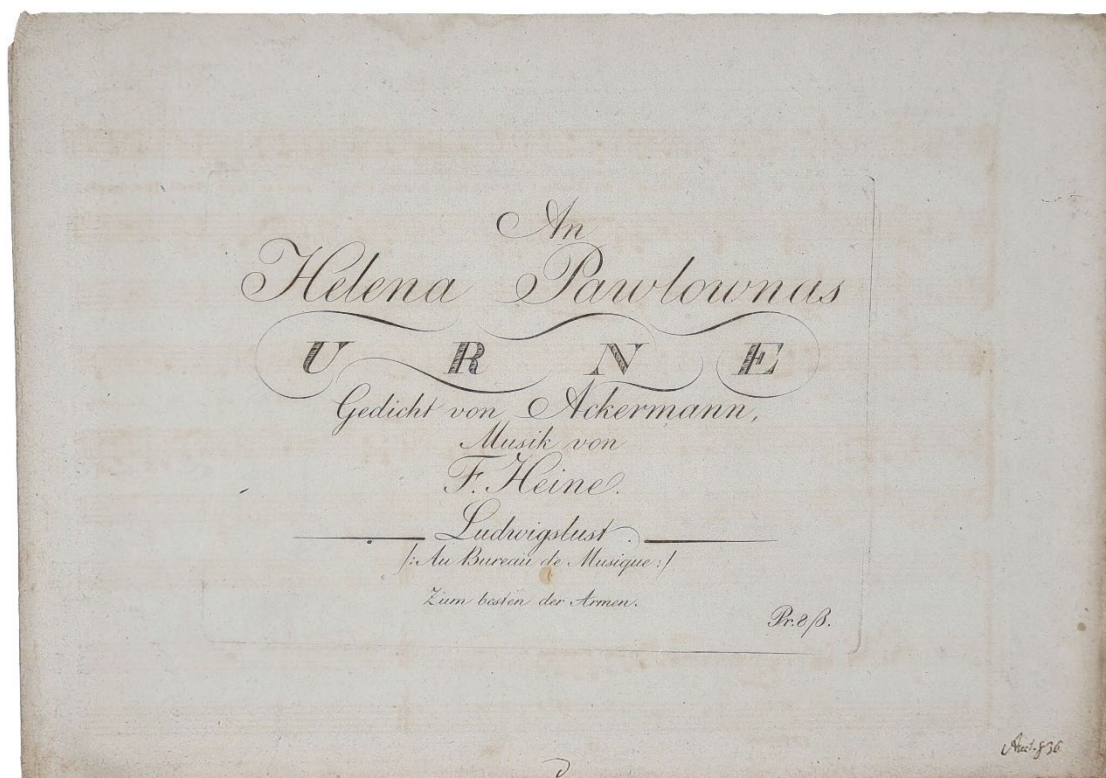 An
Helena Pawlownas
URNE
Gedicht von Ackermann,
Musik von
F. Heine.
Ludwigslust.
/: Au Bureau de Musique :/
Zum besten der Armen.
Pr. 8 ß.